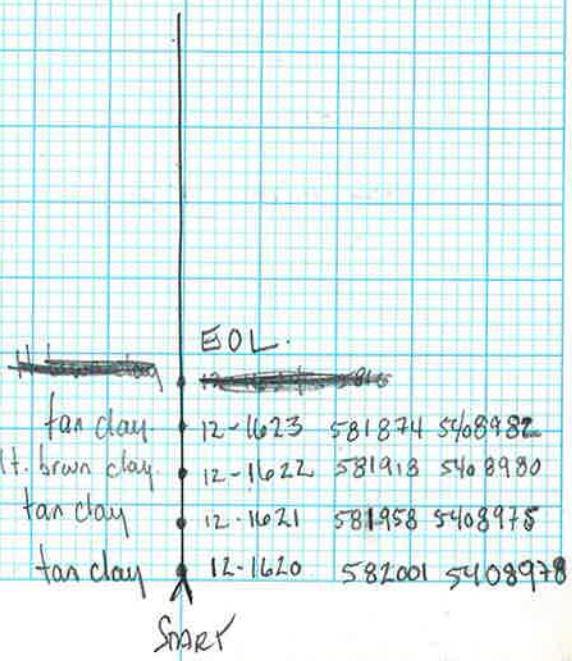 EOL.
tan clay. 12-1623 581874 5408982
lt. brown clay. 12-1622 581913 5408980
tan clay 12-1621 581958 5408975
tan clay 12-1620 582001 5408978
START